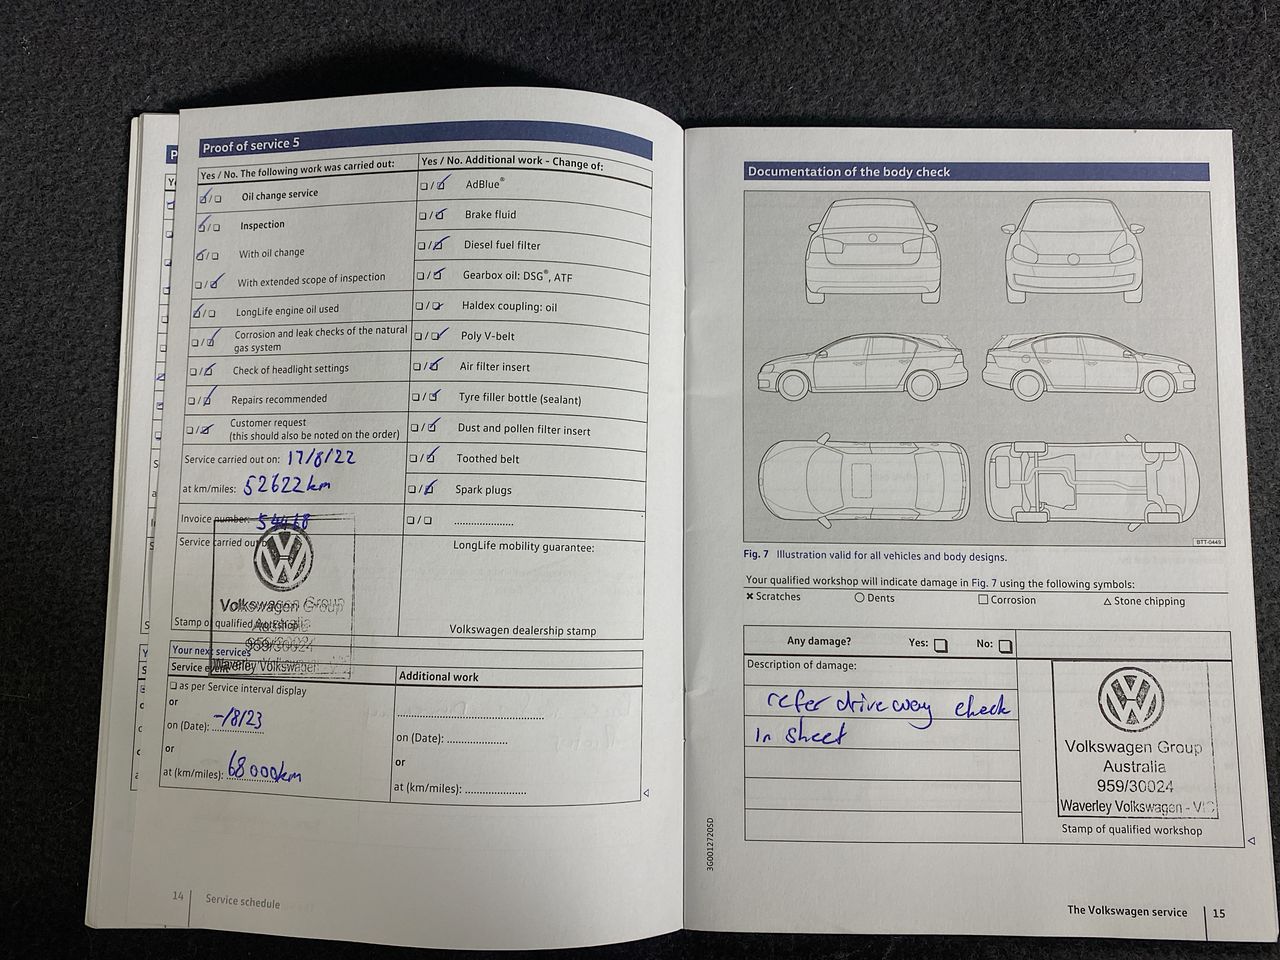 Proof of service 5
Yes / No. The following work was carried out:
Oil change service
Inspection
With oil change
With extended scope of inspection
LongLife engine oil used
Corrosion and leak checks of the natural
gas system
Check of headlight settings
Repairs recommended
Customer request
(this should also be noted on the order)
Service carried out on: 17/8/22
at km/miles: 52622km
Invoice number:
Service carried out by
Volkswagen Group
Australia
Stamp of qualified workshop
959/30024
Waverley Volkswagen
Yes / No. Additional work - Change of:
AdBlue®
Brake fluid
Diesel fuel filter
Gearbox oil: DSG®, ATF
Haldex coupling: oil
Poly V-belt
Air filter insert
Tyre filler bottle (sealant)
Dust and pollen filter insert
Toothed belt
Spark plugs
....................
LongLife mobility guarantee:
Volkswagen dealership stamp
Your next services
Service event
as per Service interval display
or
on (Date): -/8/23
or
at (km/miles): 68000km
Additional work
on (Date): ....................
or
at (km/miles): ....................
14 Service schedule
Documentation of the body check
BTT-0449
Fig. 7 Illustration valid for all vehicles and body designs.
Your qualified workshop will indicate damage in Fig. 7 using the following symbols:
Scratches Dents Corrosion Stone chipping
Any damage? Yes: No:
Description of damage:
refer driveway check
in sheet
Volkswagen Group
Australia
959/30024
Waverley Volkswagen - VIC
Stamp of qualified workshop
3G0012720SD
The Volkswagen service 15